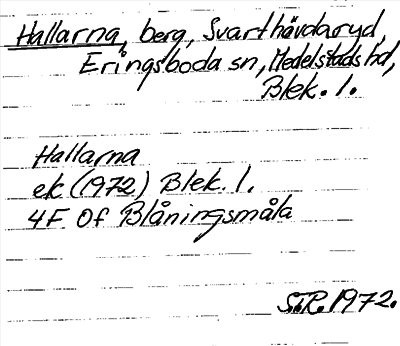 Hallarna, berg, Svarthövdaryd,
Eringsboda sn, Medelstads hd,
Blek. l.
Hallarna
ek (1972) Blek. l.
4F 0f Blåningsmåla
S.T.R. 1972.